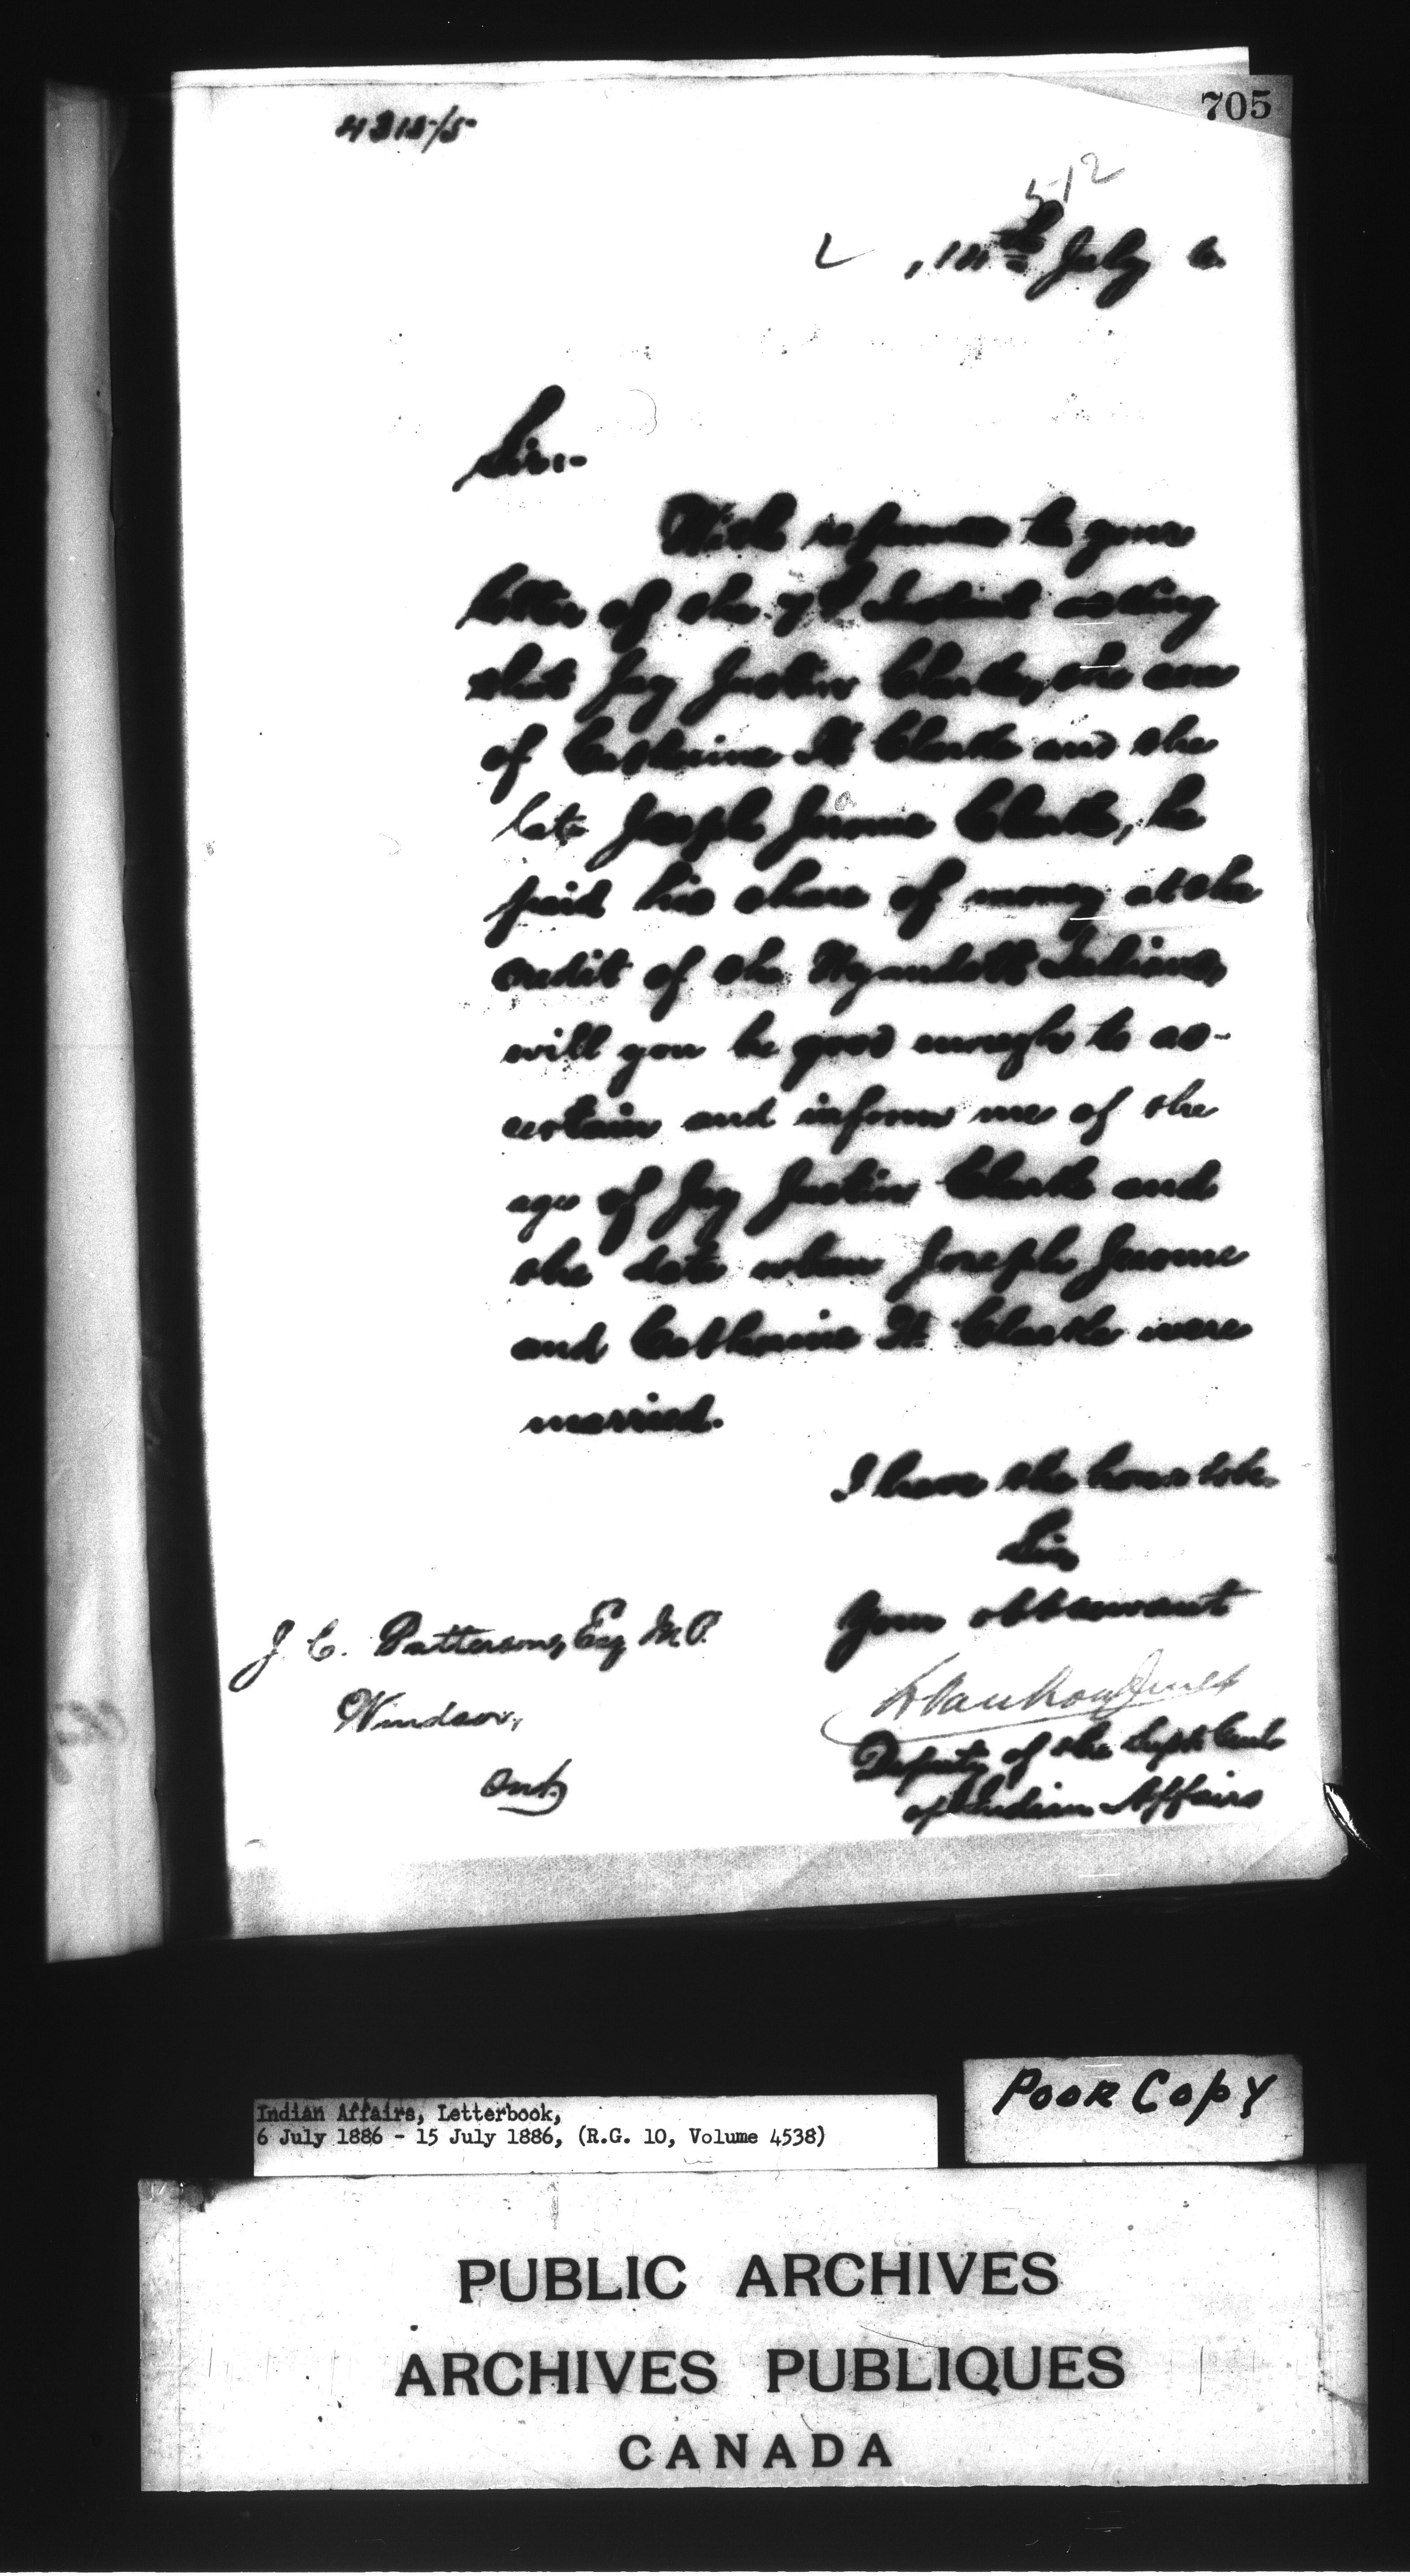 705
512
14th July 6
Sir:-
With reference to your
letter of the 7th Instant asking
that Jay Justin Clarke, the son
of Catherine H Clarke and the
late Joseph Jerome Clarke, be
paid his share of money at the
credit of the Wyandott Indians,
will you be good enough to as-
certain and inform me of the
age of Jay Justin Clarke and
the date when Joseph Jerome
and Catherine H. Clarke were
married.
I have the honor to be
Sir
Your obt servant
L Vankoughnet
Deputy of the Supt Genl
of Indian Affairs
J. C. Patterson, Esq M.P.
Windsor,
Ont
Poor Copy
Indian Affairs, Letterbook,
6 July 1886 - 15 July 1886, (R.G. 10, Volume 4538)
PUBLIC ARCHIVES
ARCHIVES PUBLIQUES
CANADA